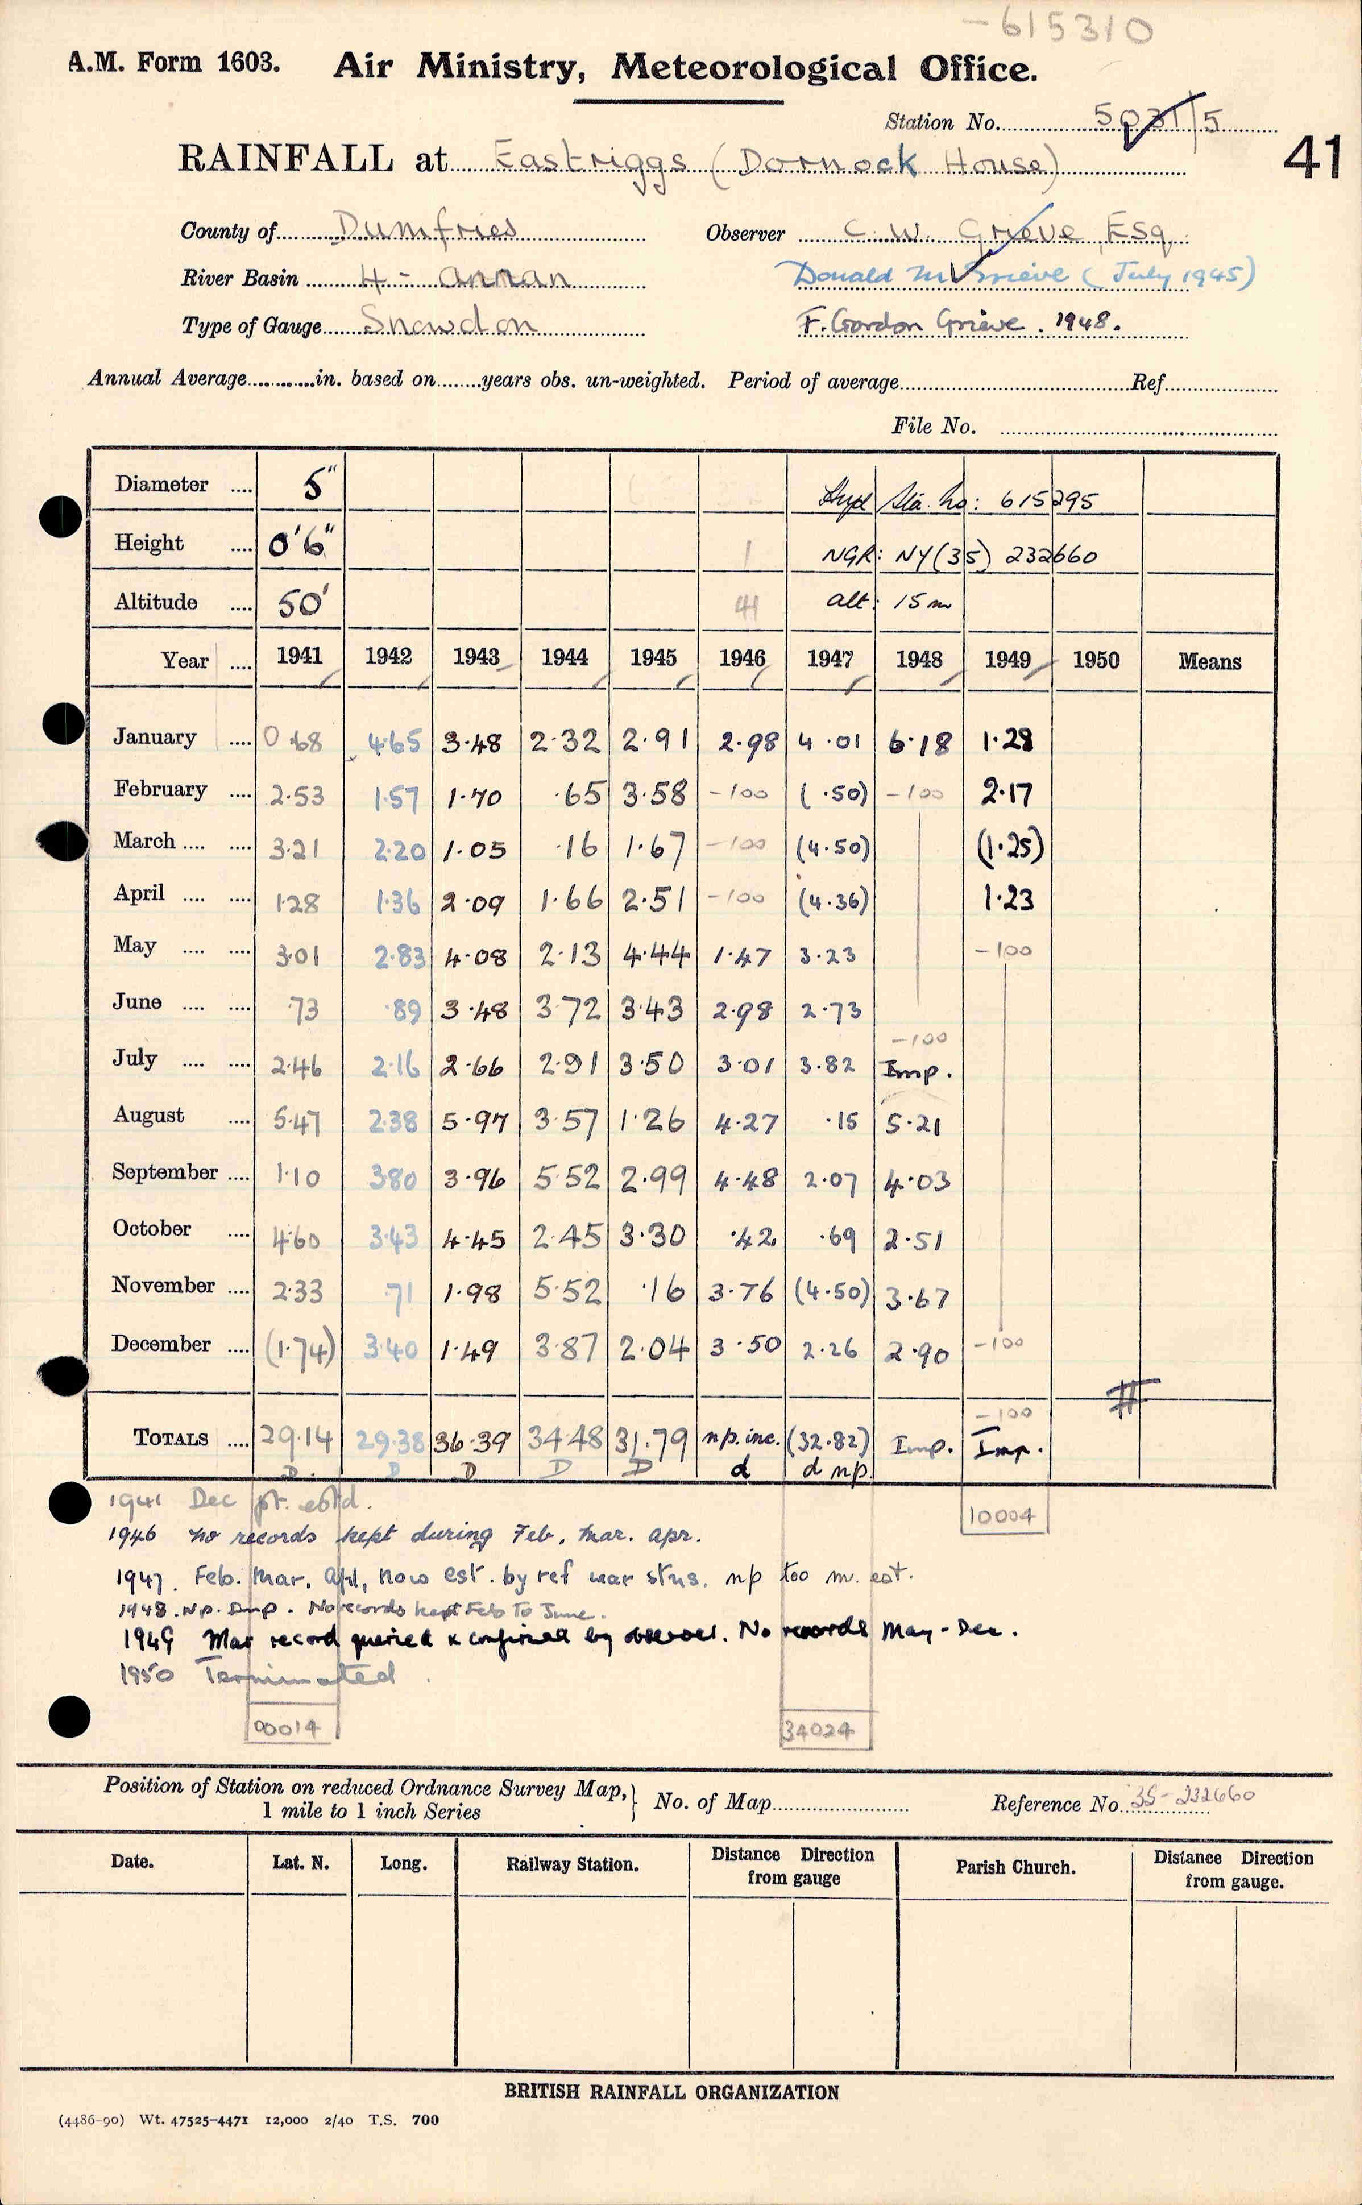 -615310
A.M. Form 1603. Air Ministry, Meteorological Office.
Station No. 5031/5
41
RAINFALL at Eastriggs (Dornock House)
County of Dumfries Observer C. W. Grieve, Esq
River Basin 4 - Annan Donald M Grieve (July 1945)
Type of Gauge Snowdon F. Gordon Grieve. 1948.
Annual Average............in. based on........years obs. un-weighted. Period of average.......... Ref..........
File No. ..........
Diameter .... 5" Hyd Sta. no: 615295
Height .... 0'6" NGR: NY(35) 232660
Altitude .... 50' alt: 15m
Year .... 1941 1942 1943 1944 1945 1946 1947 1948 1949 1950 Means
January .... 0.68 4.65 3.48 2.32 2.91 2.98 4.01 6.18 1.28
February .... 2.53 1.57 1.70 .65 3.58 -100 (.50) -100 2.17
March .... .... 3.21 2.20 1.05 .16 1.67 -100 (4.50) (1.25)
April .... .... 1.28 1.36 2.09 1.66 2.51 -100 (4.36) 1.23
May .... .... 3.01 2.83 4.08 2.13 4.44 1.47 3.23 -100
June .... .... .73 .89 3.48 3.72 3.43 2.98 2.73
-100
July .... .... 2.46 2.16 2.66 2.91 3.50 3.01 3.82 Imp.
August .... 5.47 2.38 5.97 3.57 1.26 4.27 .15 5.21
September .... 1.10 3.80 3.96 5.52 2.99 4.48 2.07 4.03
October .... 4.60 3.43 4.45 2.45 3.30 .42 .69 2.51
November .... 2.33 .71 1.98 5.52 .16 3.76 (4.50) 3.67
December .... (1.74) 3.40 1.49 3.87 2.04 3.50 2.26 2.90 -100
-100
TOTALS .... 29.14 29.38 36.39 34.48 31.79 np. inc. (32.82) Imp. Imp.
D D D D D d d np.
1941 Dec pt. estd.
10004
1946 No records kept during Feb, Mar. Apr.
1947. Feb. Mar. Apl, Nov est. by ref near stns. np too m. est.
1948. Np. Imp. No records kept Feb To June.
1949 Mar record queried & confirmed by observer. No records May - Dec.
1950 Terminated
00014 34024
Position of Station on reduced Ordnance Survey Map, 1 mile to 1 inch Series } No. of Map.......... Reference No. 35-232660
Date. Lat. N. Long. Railway Station. Distance Direction from gauge Parish Church. Distance Direction from gauge.
BRITISH RAINFALL ORGANIZATION
(4486-90) Wt. 47525-4471 12,000 2/40 T.S. 700